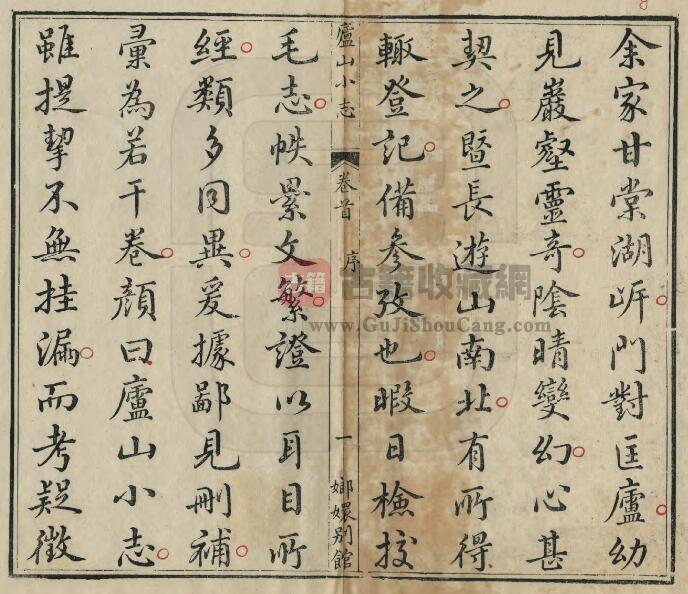 余家甘棠湖㟁門對匡廬幼
見巖壑靈竒陰晴變幻心甚
契之暨長遊山南北有所得
輙登記備參攷也暇日檢挍
廬山小志
卷首
序
一
嫏嬛別館
毛志帙累文繁證以耳目所
經類多同異爰據鄙見刪補
彚為若干卷顔曰廬山小志
雖提挈不無挂漏而考疑徵
古籍
古籍收藏網
www.GuJiShouCang.com